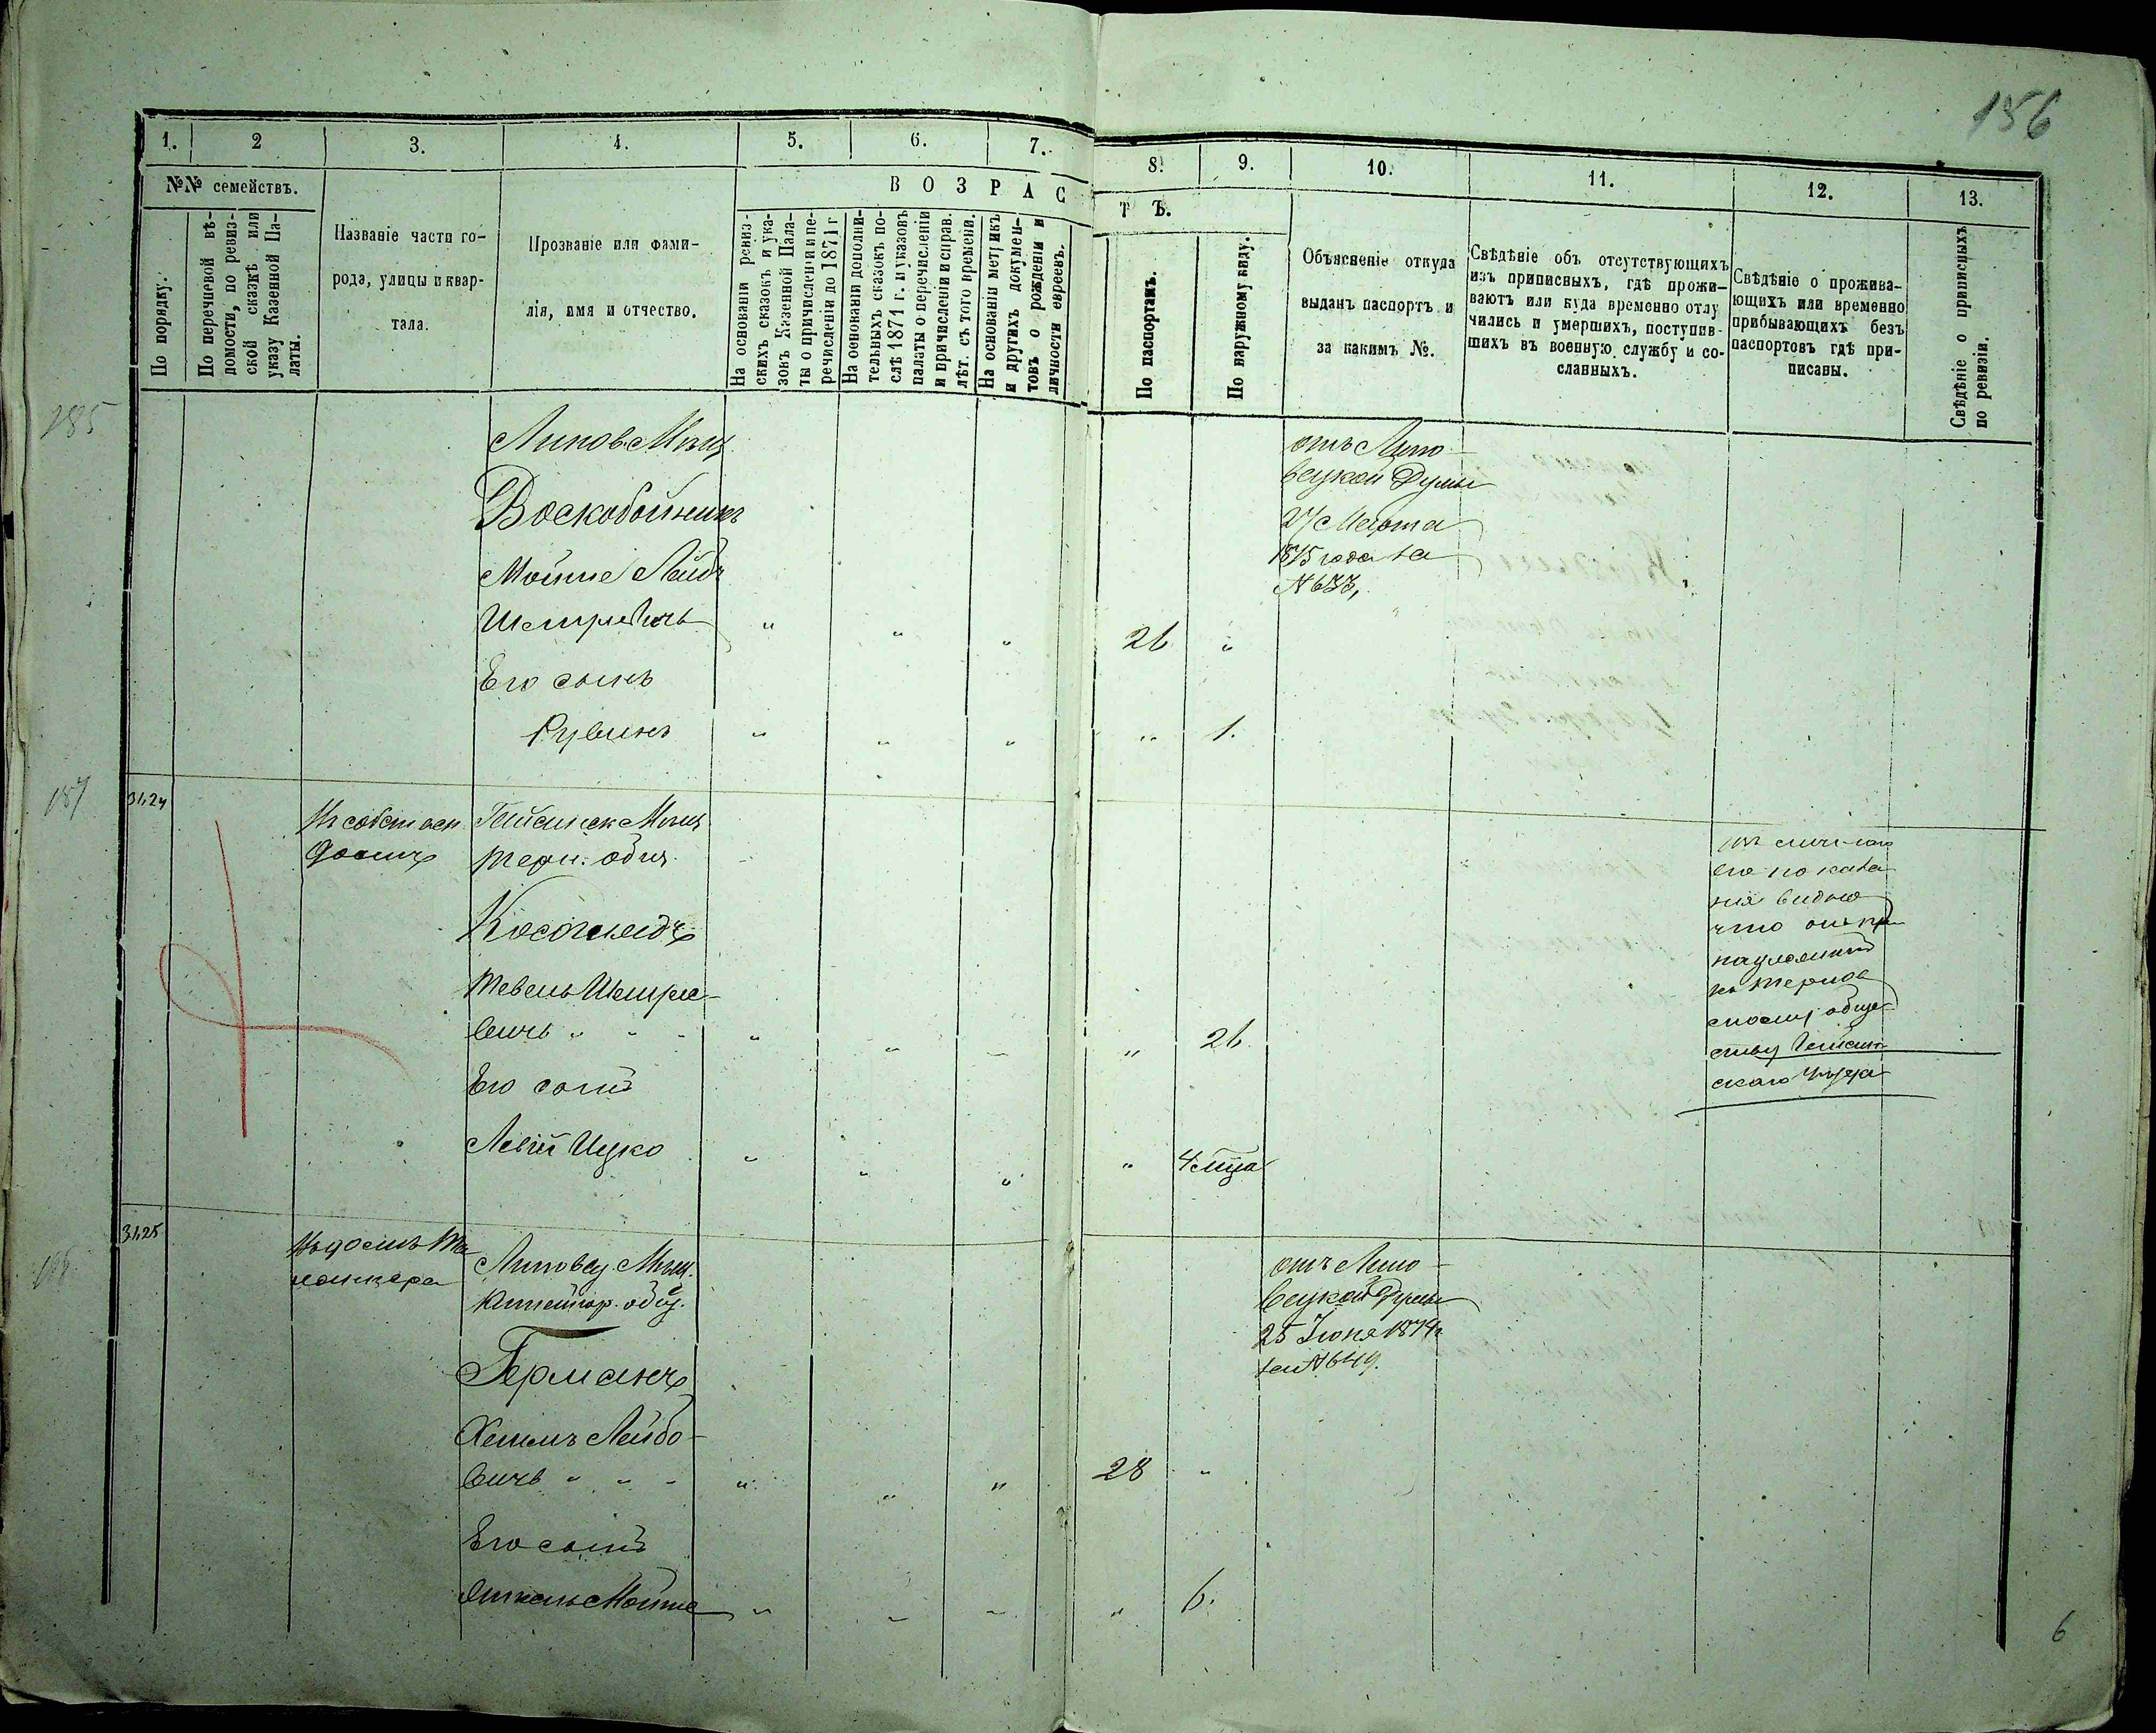 156
1. 2 3. 4. 5. 6. 7. 8. 9. 10. 11. 12. 13.
№№ семействъ.
В О З Р А С Т Ъ.
По порядку.
По перечневой вѣ-
домости, по ревиз-
ской сказкѣ или
указу Казенной Па-
латы.
Названіе части го-
рода, улицы и квар-
тала.
Прозваніе или фами-
лія, имя и отчество.
На основаніи ревиз-
скихъ сказокъ и ука-
зовъ Казенной Пала-
ты о причисленіи и пе-
речисленіи до 1871 г
На основаніи дополни-
тельныхъ сказокъ по-
слѣ 1871 г. и указовъ
палаты о перечисленіи
и причисленіи и справ.
лѣт. съ того времени.
На основаніи метрикъ
и другихъ докумен-
товъ о рожденіи и
личности евреевъ.
По паспортамъ.
По наружному виду.
Объясненіе откуда
выданъ паспортъ и
за какимъ №.
Свѣдѣніе объ отсутствующихъ
изъ приписныхъ, гдѣ прожи-
ваютъ или куда временно отлу
чились и умершихъ, поступив-
шихъ въ военную службу и со-
сланныхъ.
Свѣдѣніе о прожива-
ющихъ или временно
прибывающихъ безъ
паспортовъ гдѣ при-
писаны.
Свѣдѣніе о приписныхъ
по ревизіи.
285
Липов. Мѣщ
Воскобойникъ
Мойше Лейб
Шмулевичъ " " " 26 "
Его сынъ
Рувинъ " " " " 1.
отъ Липо-
вецкой Думы
27 Марта
1875 года за
№ 633,
187
3124
Въ собствен
домѣ
Гайсинск. Мѣщ
Терн. общ.
Тевель Шмуле-
вичъ " " " " 26
Его сынъ
Лейб Ицко " " " " 4 мца
его показа
нія видно
что онъ при
надлежитъ
къ Тернов
скому обще
ству Гайсин
скаго Уѣзда
188
3125
Въ домѣ
Липовец. Мѣщ.
общ.
Германъ
Хаимъ Лейбо-
вичъ " " " 28 "
Его сынъ
Янкель Мойше " " " " 6.
отъ Липо-
вецкой Думы
25 Іюня 1874 г
за № 649.
6